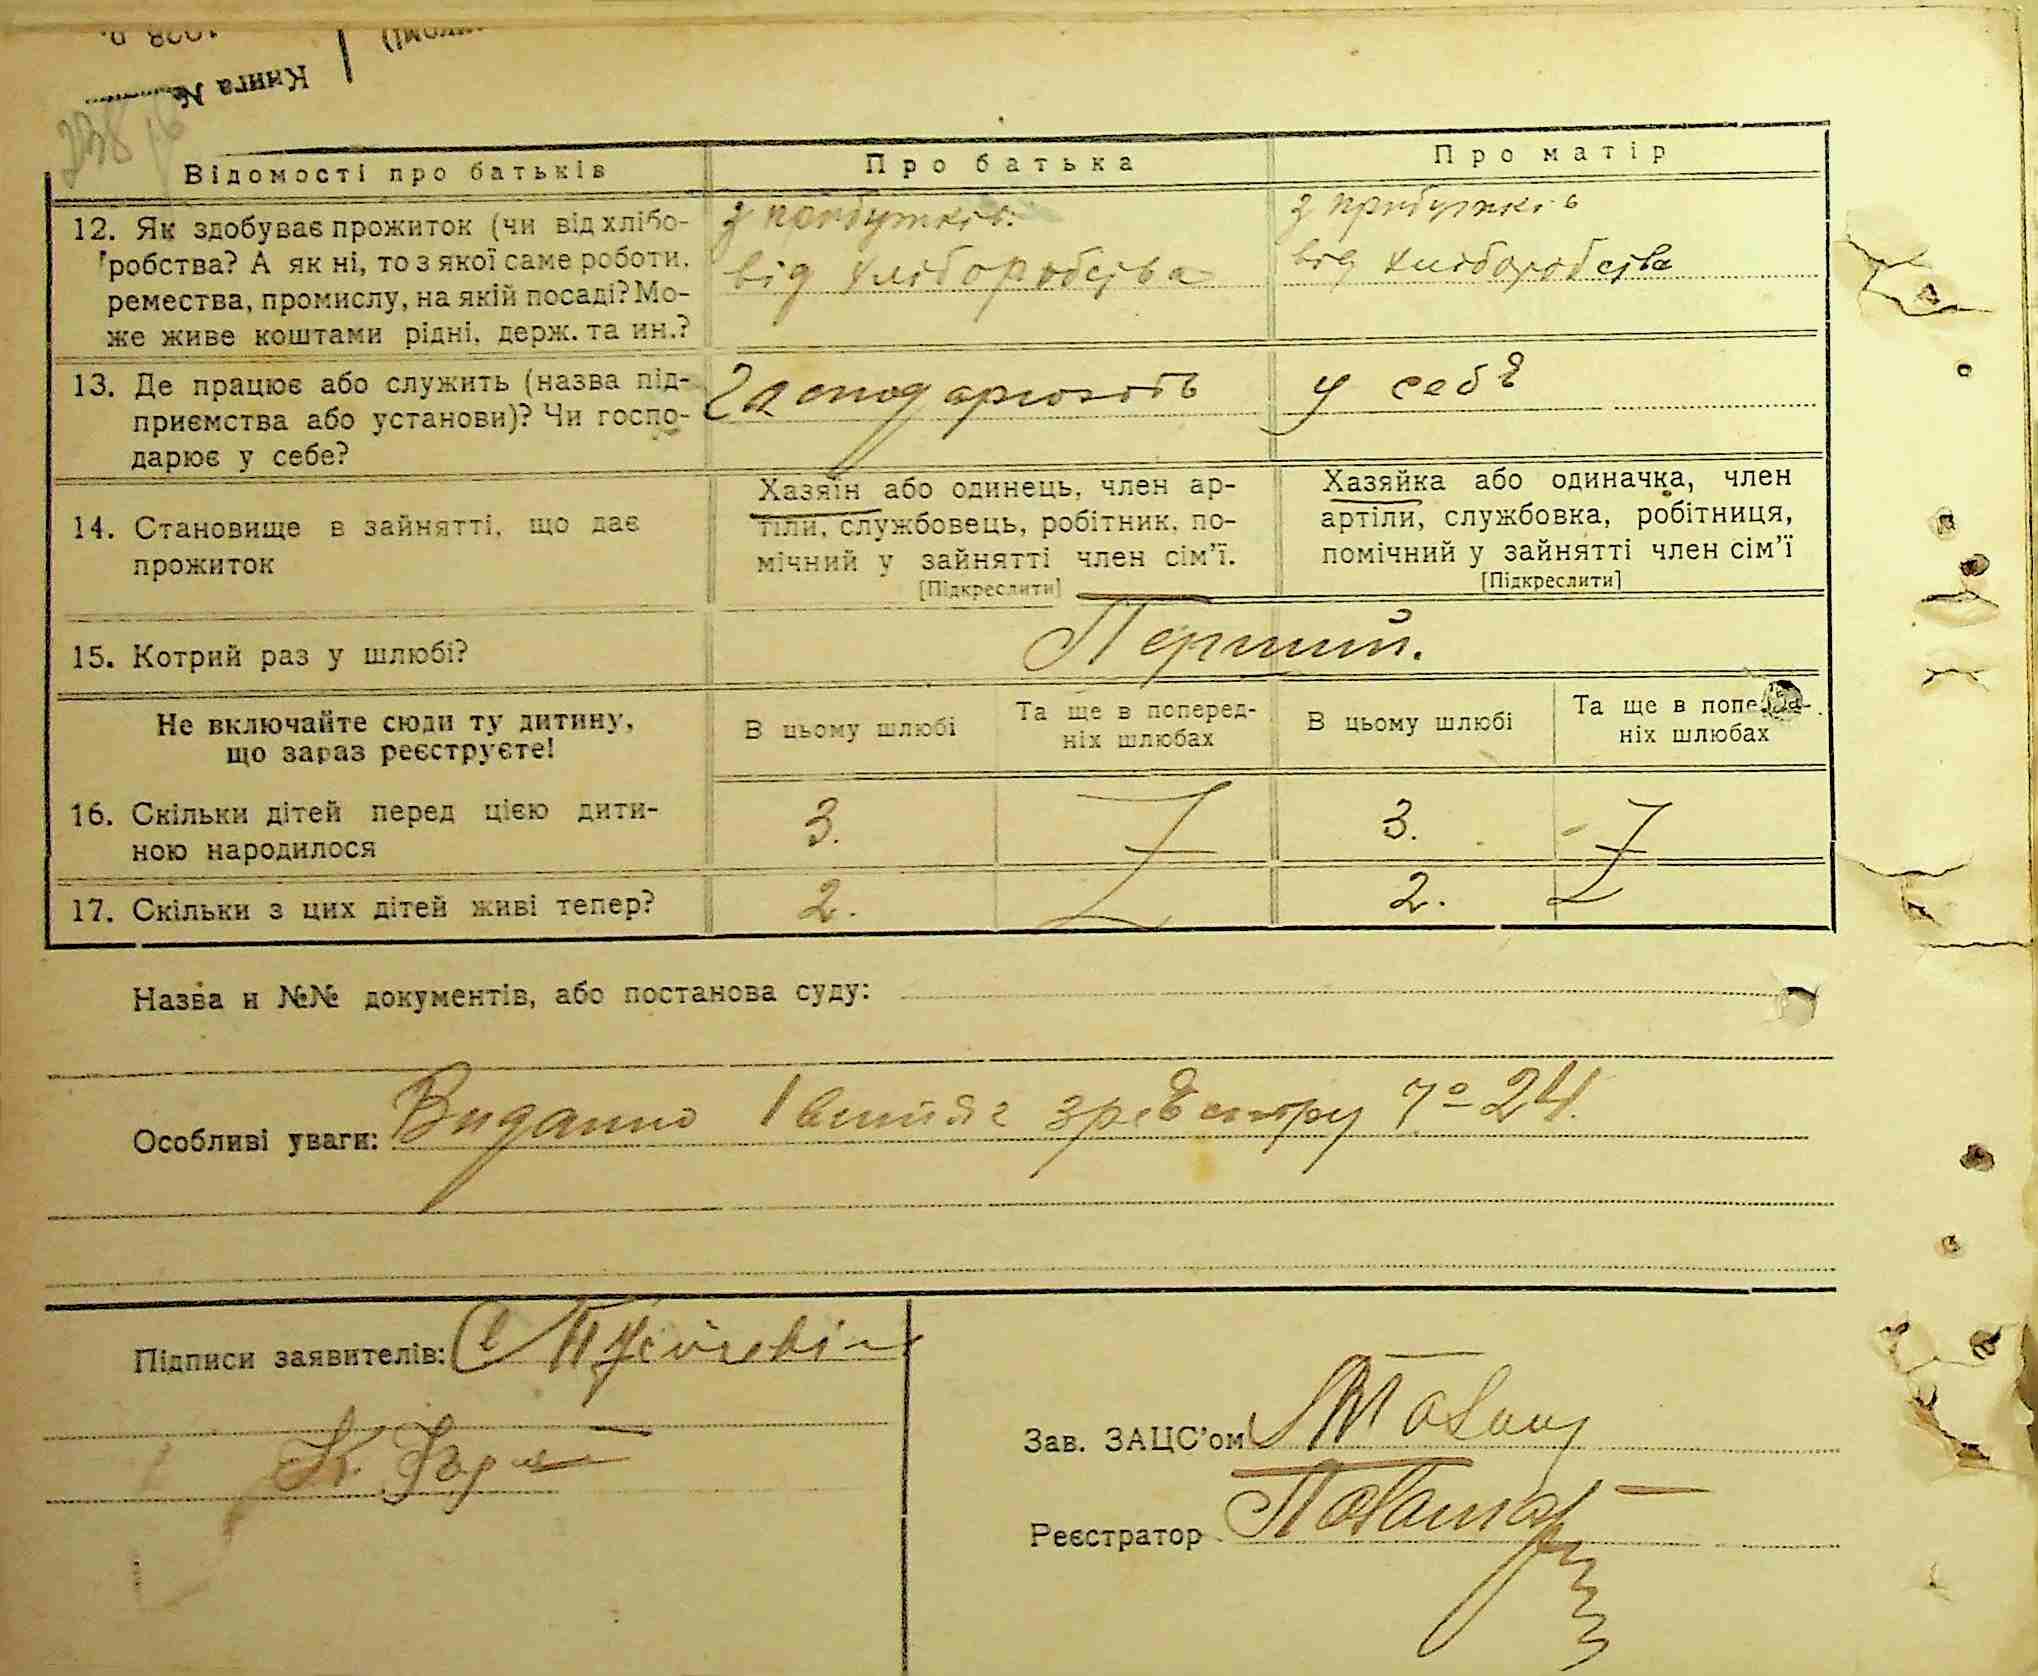 1928 р.
Книга №
238
Відомості про батьків
Про батька
Про матір
12. Як здобуває прожиток (чи від хлібо-
робства? А як ні, то з якої саме роботи,
ремества, промислу, на якій посаді? Мо-
же живе коштами рідні, держ. та ин.?
з прибутків
від хліборобства
з прибутків
від хліборобства
13. Де працює або служить (назва під-
приємства або установи)? Чи госпо-
дарює у себе?
Господарюють
у себѣ
14. Становище в зайнятті, що дає
прожиток
Хазяїн або одинець, член ар-
тіли, службовець, робітник, по-
мічний у зайнятті член сім'ї.
[Підкреслити]
Хазяйка або одиначка, член
артіли, службовка, робітниця,
помічний у зайнятті член сім'ї
[Підкреслити]
15. Котрий раз у шлюбі?
Перший.
Не включайте сюди ту дитину,
що зараз реєструєте!
В цьому шлюбі
Та ще в поперед-
ніх шлюбах
В цьому шлюбі
Та ще в поперед-
ніх шлюбах
16. Скільки дітей перед цією дити-
ною народилося
3.
3.
17. Скільки з цих дітей живі тепер?
2.
2.
Назва и №№ документів, або постанова суду:
Особливі уваги: Виданно № 24.
Підписи заявителів:
К.
Зав. ЗАЦС'ом
Реєстратор